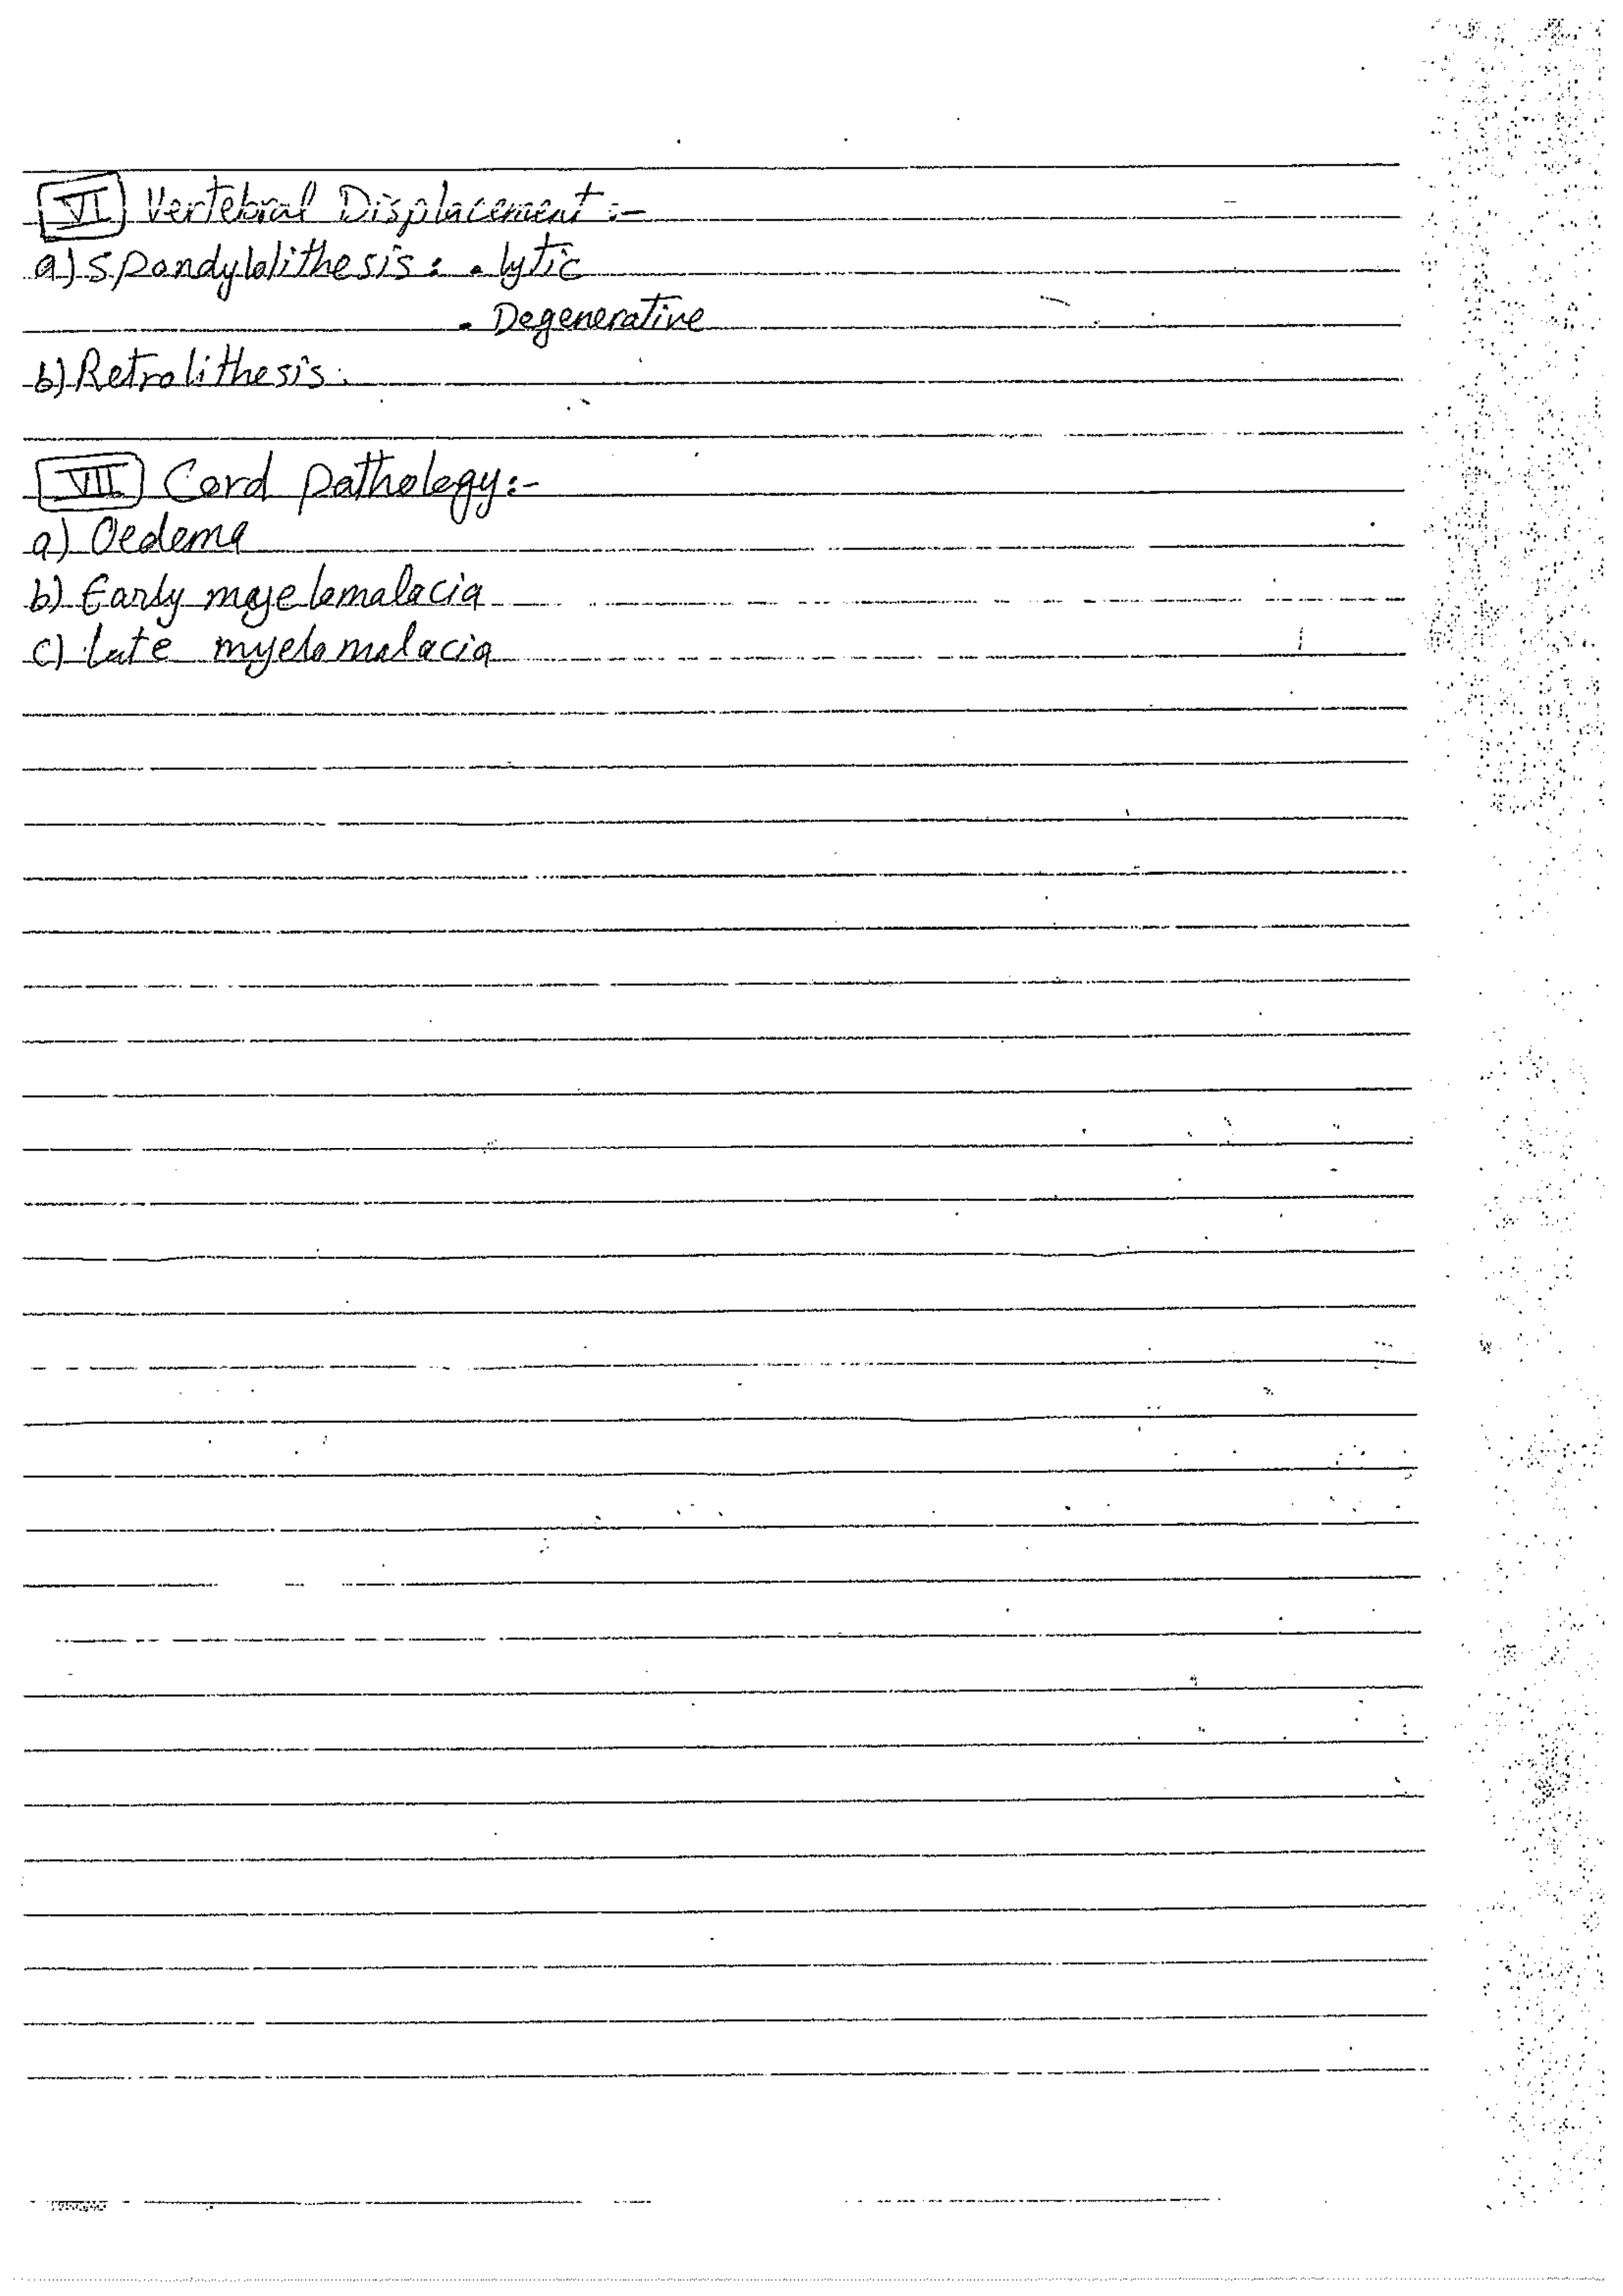 VI Vertebral Displacement :-
a) Spondylolithesis : . lytic
. Degenerative
b) Retrolithesis.
VII Cord pathology :-
a) Oedema
b) Early myelomalacia
c) Late myelomalacia